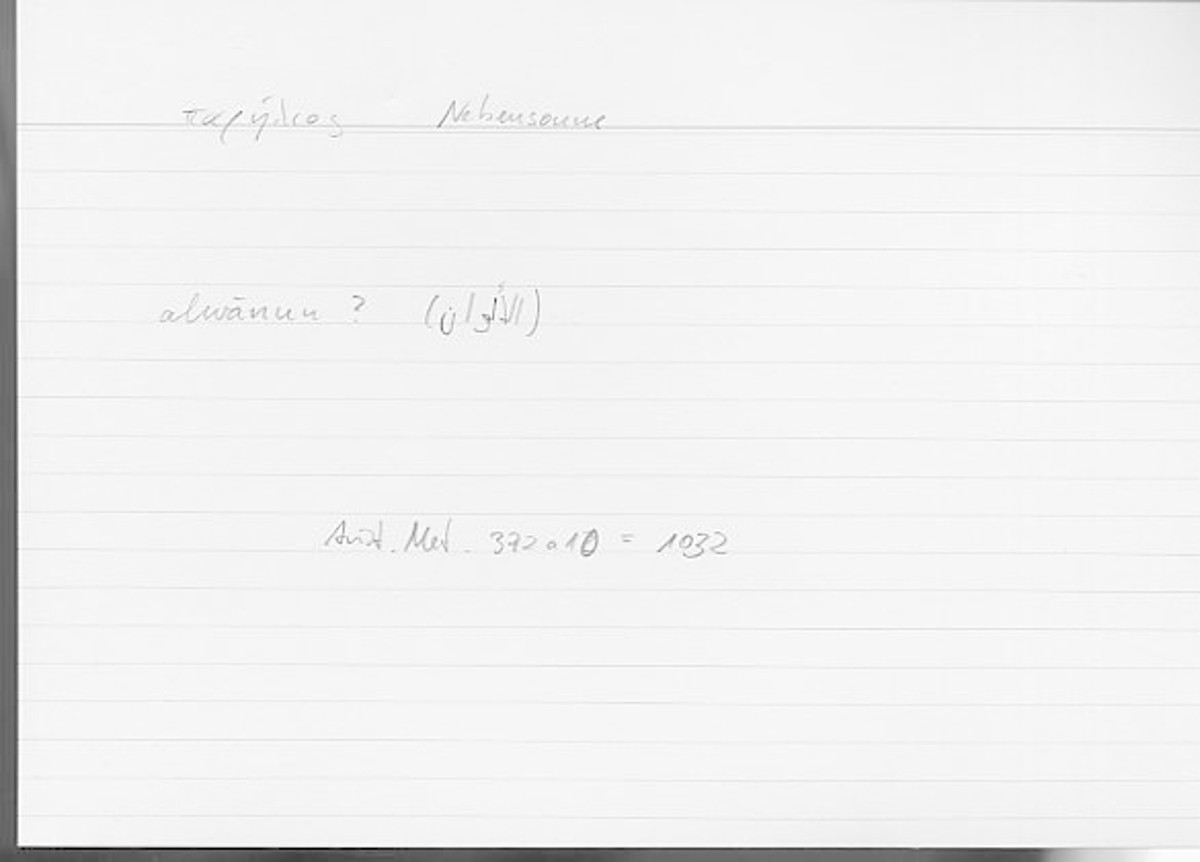 παρήλιος Nebensonne
alwānun ? (الألوان)
Arist. Met. 372a10 = 1032